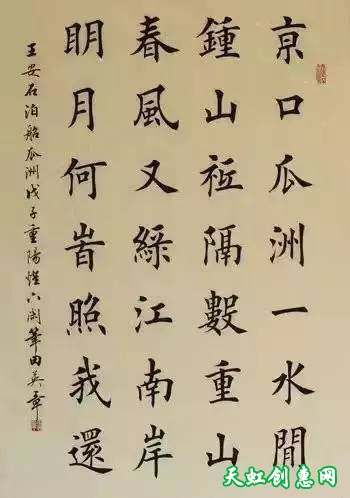 亰口瓜洲一水閒
鍾山祗隔數重山
春風又綠江南岸
眀月何旹照我還
王安石泊船瓜洲戊子重陽惺六筆田英章
天虹创惠网